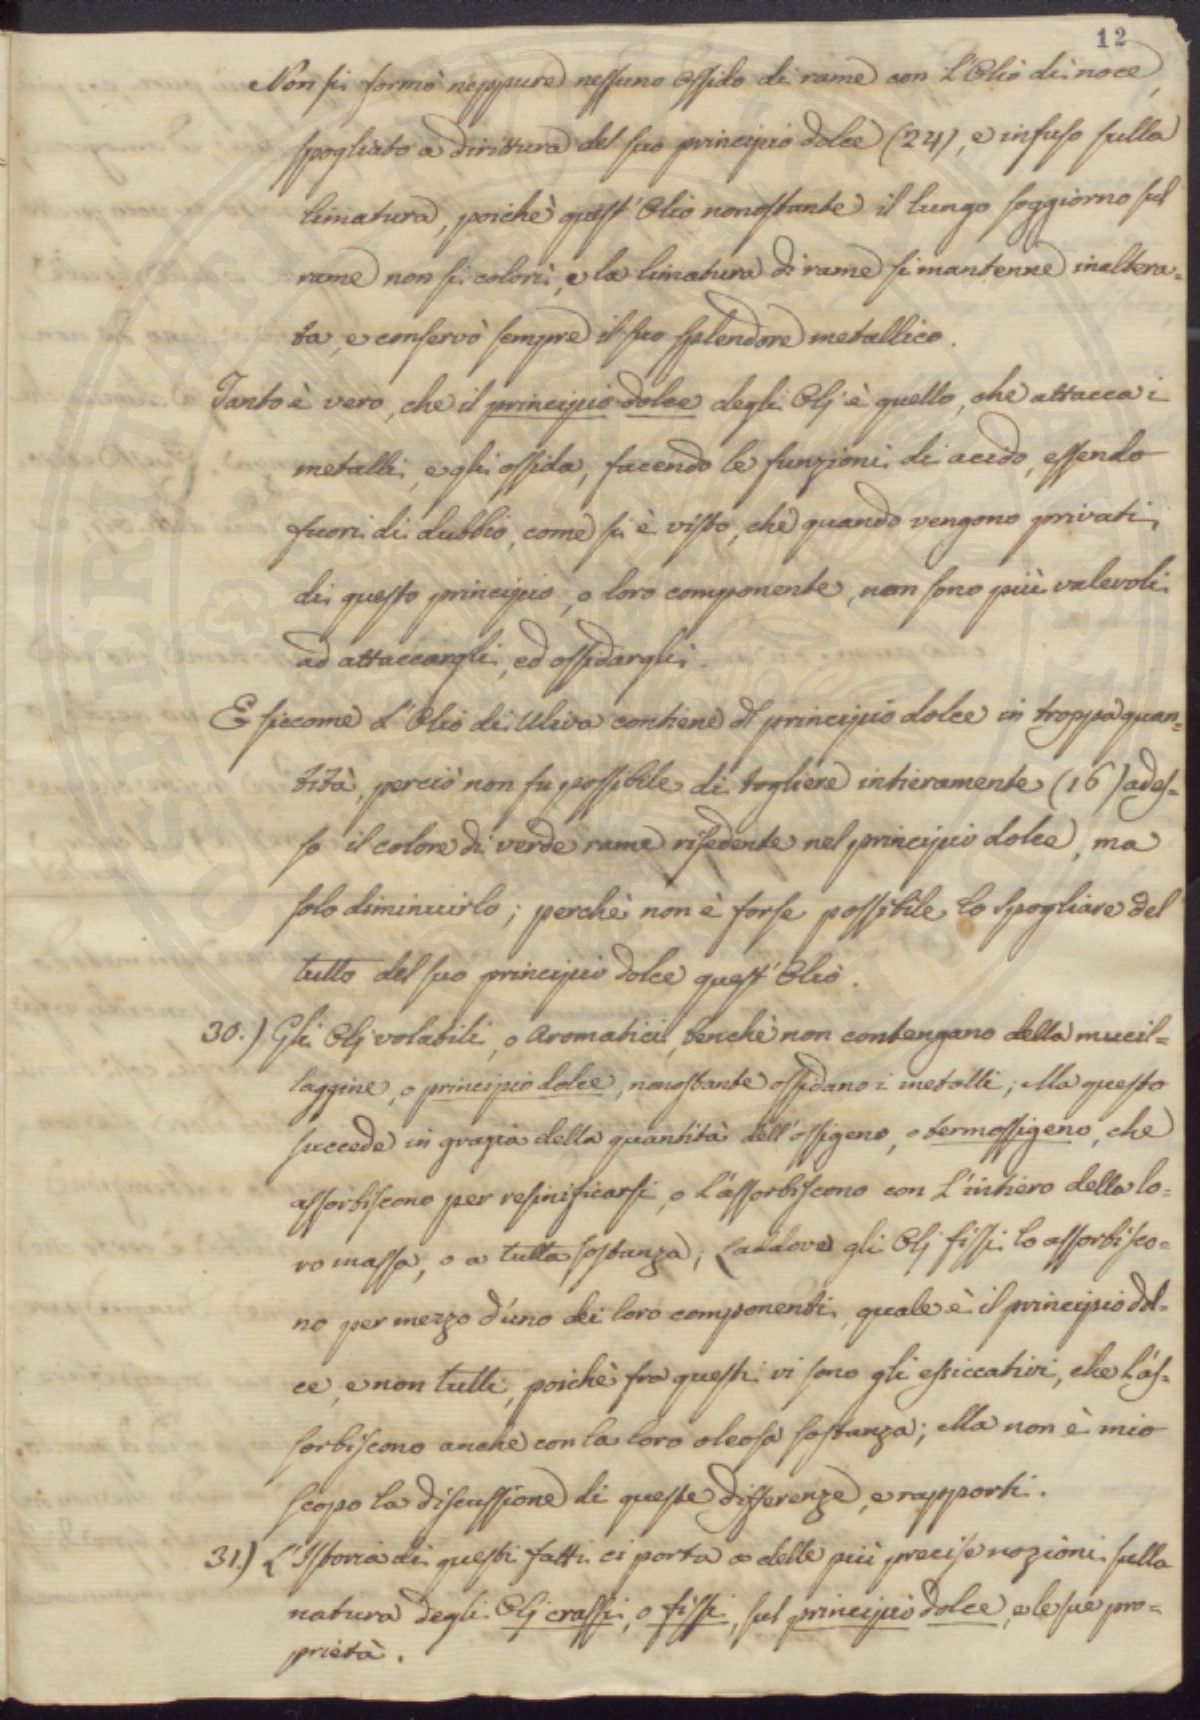 12
Non si formò neppure nessuno ossido di rame con l'Olio di noce,
spogliato a dirittura del suo principio dolce (24), e infuso sulla
limatura, poichè quest'Olio nonostante il lungo soggiorno sul
rame non si colorì, e la limatura di rame si mantenne inaltera=
ta, e conservò sempre il suo splendore metallico.
Tanto è vero, che il principio dolce degli Olj è quello, che attacca i
metalli, e gli ossida, facendo le funzioni di acido, essendo
fuori di dubbio, come si è visto, che quando vengono privati
di questo principio, o loro componente, non sono più valevoli
ad attaccargli, ed ossidargli.
E siccome l'Olio di Uliva contiene il principio dolce in troppa quan=
tità, perciò non fu possibile di togliere intieramente (16) ades=
so il colore di verde rame risedente nel principio dolce, ma
solo diminuirlo; perchè non è forse possibile lo spogliare del
tutto del suo principio dolce quest'Olio.
30.) Gli Olj volatili, o Aromatici, benchè non contengano della mucil=
laggine, o principio dolce, nonostante ossidano i metalli; Ma questo
succede in grazia della quantità dell'ossigeno, o termossigeno, che
assorbiscono per resinificarsi, o l'assorbiscono con l'intiero della lo=
ro massa, o a tutta sostanza; Laddove gli Olj fissi lo assorbisco=
no per mezzo d'uno dei loro componenti, quale è il principio dol=
ce, e non tutti, poichè fra questi vi sono gli essiccativi, che l'as=
sorbiscono anche con la loro oleosa sostanza; Ma non è mio
scopo la discussione di queste differenze, e rapporti.
31.) L'Istoria di questi fatti ci porta a delle più precise nozioni sulla
natura degli Olj crassi, o fissi, sul principio dolce, e le sue pro=
prietà.